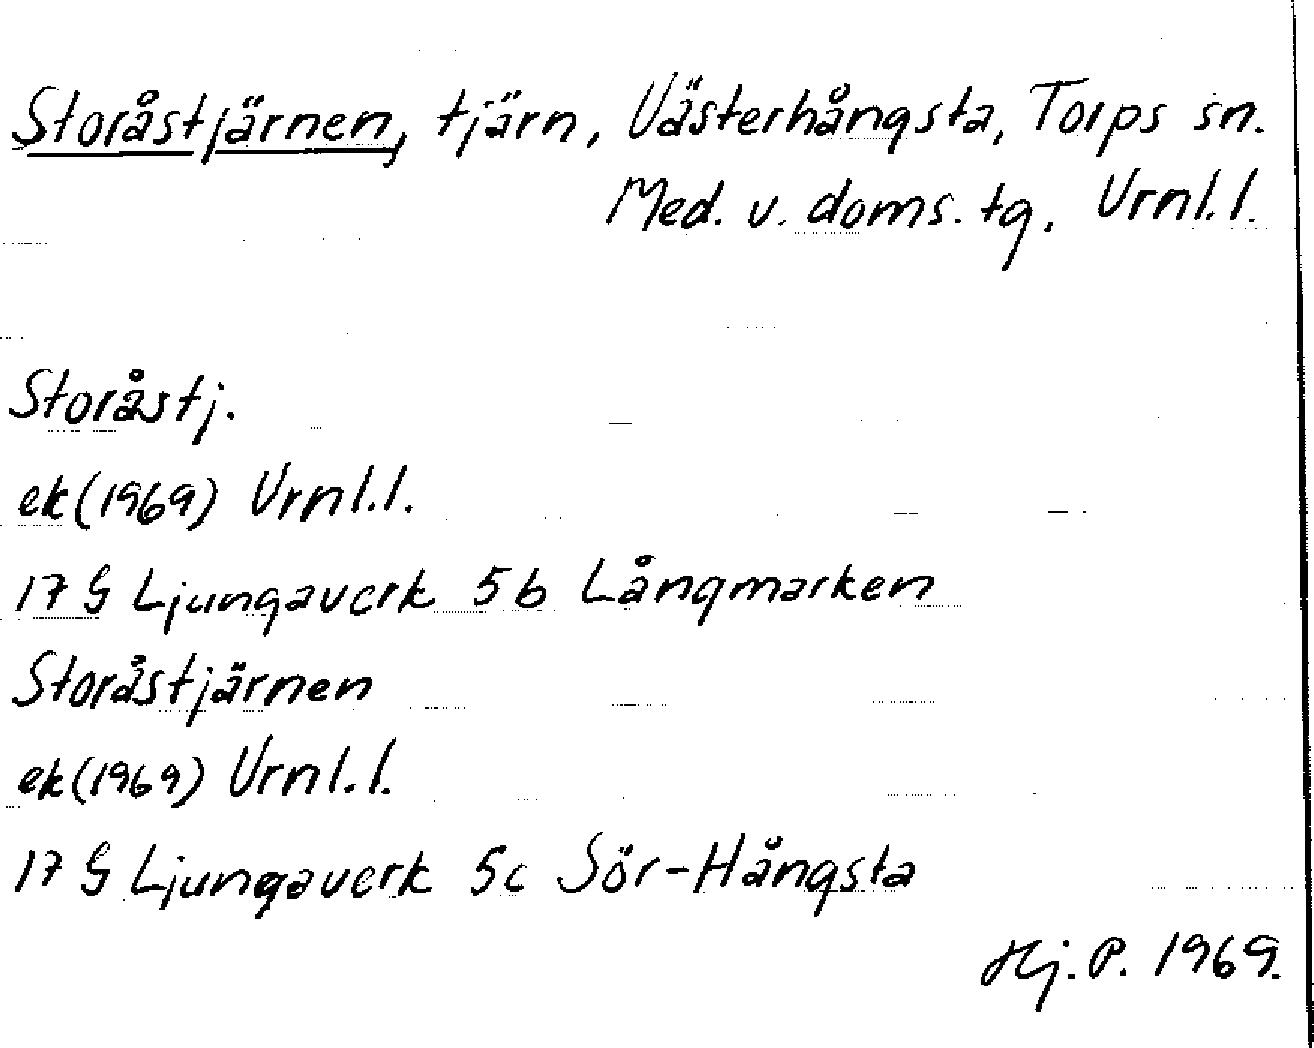 Storåstjärnen, tjärn, Västerhångsta, Torps sn.
Med. v. doms. tg. Vrnl. l.
Storåstj.
ek (1969) Vrnl. l.
17 G Ljungaverk 5b Långmarken
Storåstjärnen
ek (1969) Vrnl. l.
17 G Ljungaverk 5c Sör-Hångsta
Hj. P. 1969.